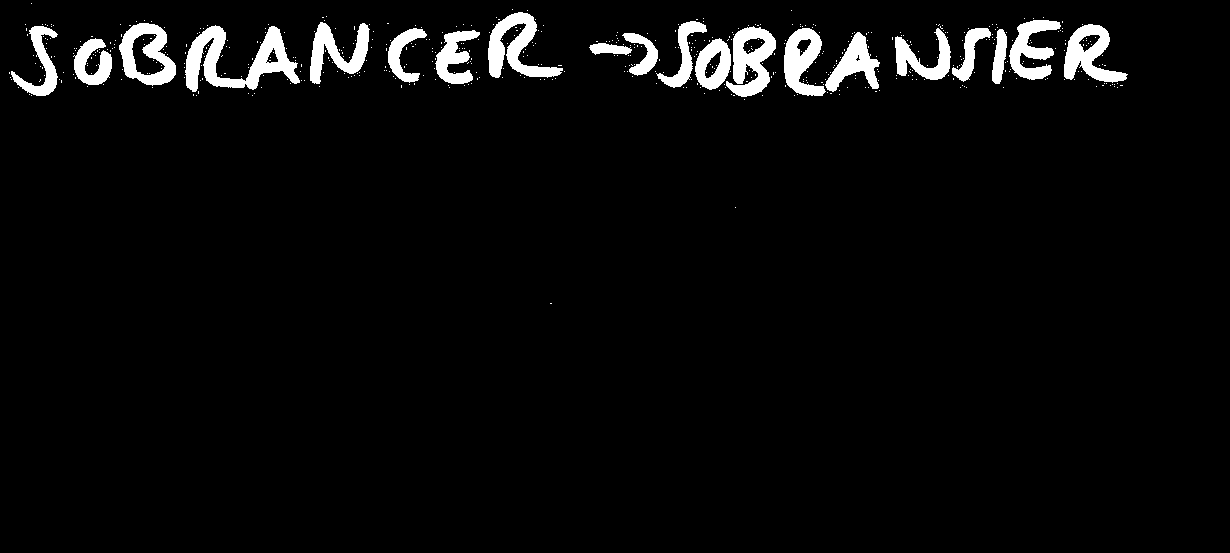 SOBRANCER → SOBRANSIER